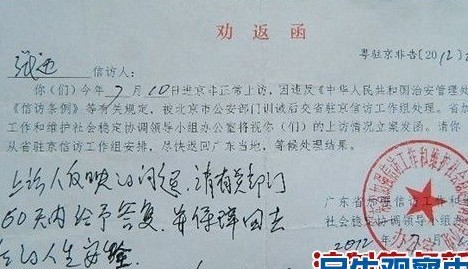 劝返函
粤驻京非告[2012]
信访人:
你(们)今年7月10日进京非正常上访,因违反《中华人民共和国治安管理处
《信访条例》等有关规定,被北京市公安部门训诫后交省驻京信访工作组处理。省
工作和维护社会稳定协调领导小组办公室将视你(们)的上访情况立案发函。请你
从省驻京信访工作组安排,尽快返回广东当地,等候处理结果。
上访人反映的问题,请有关部门
60天内给予答复,并保障回去
的人生安全
广东省处理信访工作和
社会稳定协调领导小组办
2012年7月